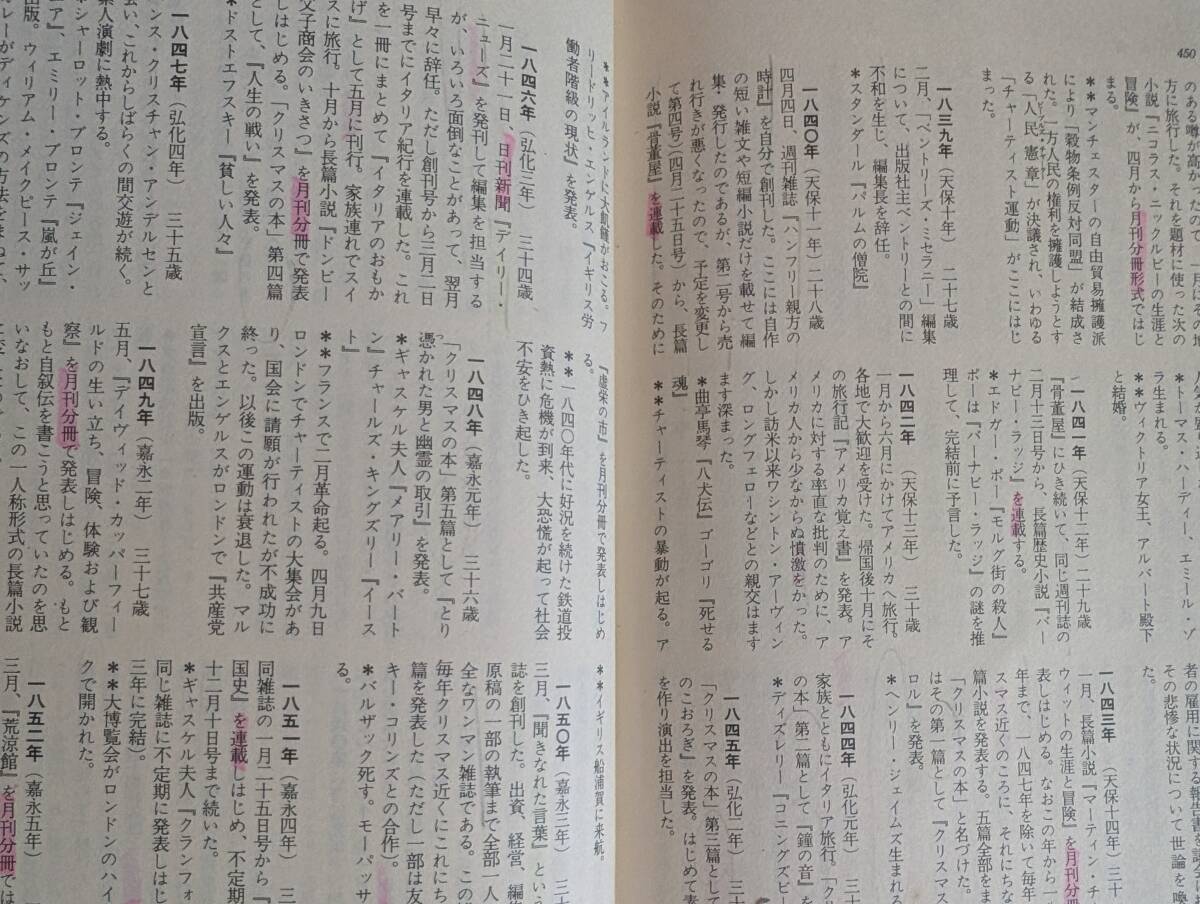 450
のある噂が高か
方に旅行した。それを題材に使った次の
小説『ニコラス・ニックルビーの生涯と
冒険』が、四月から月刊分冊形式ではじ
まる。
＊＊マンチェスターの自由貿易擁護派
により「穀物条例反対同盟」が結成さ
れた。一方人民の権利を擁護しようとす
る「人民憲章」が決議され、いわゆる
「チャーティスト運動」がここにはじ
まった。
一八三九年（天保十年）　二十七歳
二月、「ベントリーズ・ミセラニー」編集
について、出版社主ベントリーとの間に
不和を生じ、編集長を辞任。
＊スタンダール『パルムの僧院』
一八四〇年（天保十一年）二十八歳
四月四日、週刊雑誌「ハンフリー親方の
時計」を自分で創刊した。ここには自作
の短い雑文や短編小説だけを載せて編
集・発行したのであるが、第二号から売
れ行きが悪くなったので、予定を変更し
て第四号（四月二十五日号）から、長篇
小説『骨董屋』を連載した。そのために
＊トーマス・ハーディー、エミール・ゾ
ラ生まれる。
＊＊ヴィクトリア女王、アルバート殿下
と結婚。
一八四一年（天保十二年）二十九歳
『骨董屋』にひき続いて、同じ週刊誌の
二月十三日号から、長篇歴史小説『バー
ナビー・ラッジ』を連載する。
＊エドガー・ポー『モルグ街の殺人』
ポーは『バーナビー・ラッジ』の謎を推
理して、完結前に予言した。
一八四二年（天保十三年）　三十歳
一月から六月にかけてアメリカへ旅行。
各地で大歓迎を受けた。帰国後十月にそ
の旅行記『アメリカ覚え書』を発表。ア
メリカに対する率直な批判のために、ア
メリカ人から少なからぬ憤激をかった。
しかし訪米以来ワシントン・アーヴィン
グ、ロングフェローなどとの親交はます
ます深まった。
＊曲亭馬琴『八犬伝』ゴーゴリ『死せる
魂』
＊＊チャーティストの暴動が起る。ア
者の雇用に関する報告書を
その悲惨な状況について世論を喚
た。
一八四三年（天保十四年）三十
一月、長篇小説『マーティン・チ
ウィットの生涯と冒険』を月刊分
表しはじめる。なおこの年から一
年まで、一八四七年を除いて毎年
スマス近くのころに、それにちな
篇小説を発表する。五篇全部をま
「クリスマスの本」と名づけた。
はその第一篇として『クリスマス
ロル』を発表。
＊ヘンリー・ジェイムズ生まれる
一八四四年（弘化元年）　三十
家族とともにイタリア旅行。「ク
の本」第二篇として『鐘の音』を
＊ディズレリー『コニングズビー
一八四五年（弘化二年）　三十
「クリスマスの本」第三篇として
のこおろぎ』を発表。はじめて素
を作り演出を担当した。
＊＊アイルランドに大飢饉がおこる。フ
リードリッヒ・エンゲルス『イギリス労
働者階級の現状』を発表。
一八四六年（弘化三年）　三十四歳
一月二十一日、日刊新聞『デイリー・
ニューズ』を発刊して編集を担当する
が、いろいろ面倒なことがあって、翌月
早々に辞任。ただし創刊号から三月二日
号までにイタリア紀行を連載した。これ
を一冊にまとめて『イタリアのおもか
げ』として五月に刊行。家族連れでスイ
スに旅行。十月から長篇小説『ドンビー
父子商会のいきさつ』を月刊分冊で発表
しはじめる。「クリスマスの本」第四篇
として、『人生の戦い』を発表。
＊ドストエフスキー『貧しい人々』
一八四七年（弘化四年）　三十五歳
ンス・クリスチャン・アンデルセンと
会い、これからしばらくの間交遊が続く。
素人演劇に熱中する。
＊シャーロット・ブロンテ『ジェイン・
エア』、エミリー・ブロンテ『嵐が丘』
出版。ウィリアム・メイクピース・サッ
カレーがディケンズの方法をまねて、
『虚栄の市』を月刊分冊で発表しはじめ
る。
＊＊一八四〇年代に好況を続けた鉄道投
資熱に危機が到来、大恐慌が起って社会
不安をひき起した。
一八四八年（嘉永元年）　三十六歳
「クリスマスの本」第五篇として『とり
憑かれた男と幽霊の取引』を発表。
＊ギャスケル夫人『メアリー・バート
ン』チャールズ・キングズリー『イース
ト』
＊＊フランスで二月革命起る。四月九日
ロンドンでチャーティストの大集会があ
り、国会に請願が行われたが不成功に
終った。以後この運動は衰退した。マル
クスとエンゲルスがロンドンで『共産党
宣言』を出版。
一八四九年（嘉永二年）　三十七歳
五月、『デイヴィッド・カッパーフィー
ルドの生い立ち、冒険、体験および観
察』を月刊分冊で発表しはじめる。もと
もと自叙伝を書こうと思っていたのを思
いなおして、この一人称形式の長篇小説
＊＊イギリス船浦賀に来航。
一八五〇年（嘉永三年）　三十
三月、『聞きなれた言葉』という
誌を創刊した。出資、経営、編
原稿の一部の執筆まで全部一人
全なワンマン雑誌である。この
毎年クリスマス近くにこれにち
篇を発表した（ただし一部は友
キー・コリンズとの合作）。
＊バルザック死す。モーパッサ
る。
一八五一年（嘉永四年）　三
同雑誌の一月二十五日号から『
国史』を連載しはじめ、不定期
十二月十日号まで続いた。
＊ギャスケル夫人『クランフォ
同じ雑誌に不定期に発表しはじ
三年に完結）。
＊＊大博覧会がロンドンのハイ
クで開かれた。
一八五二年（嘉永五年）
三月、『荒涼館』を月刊分冊では